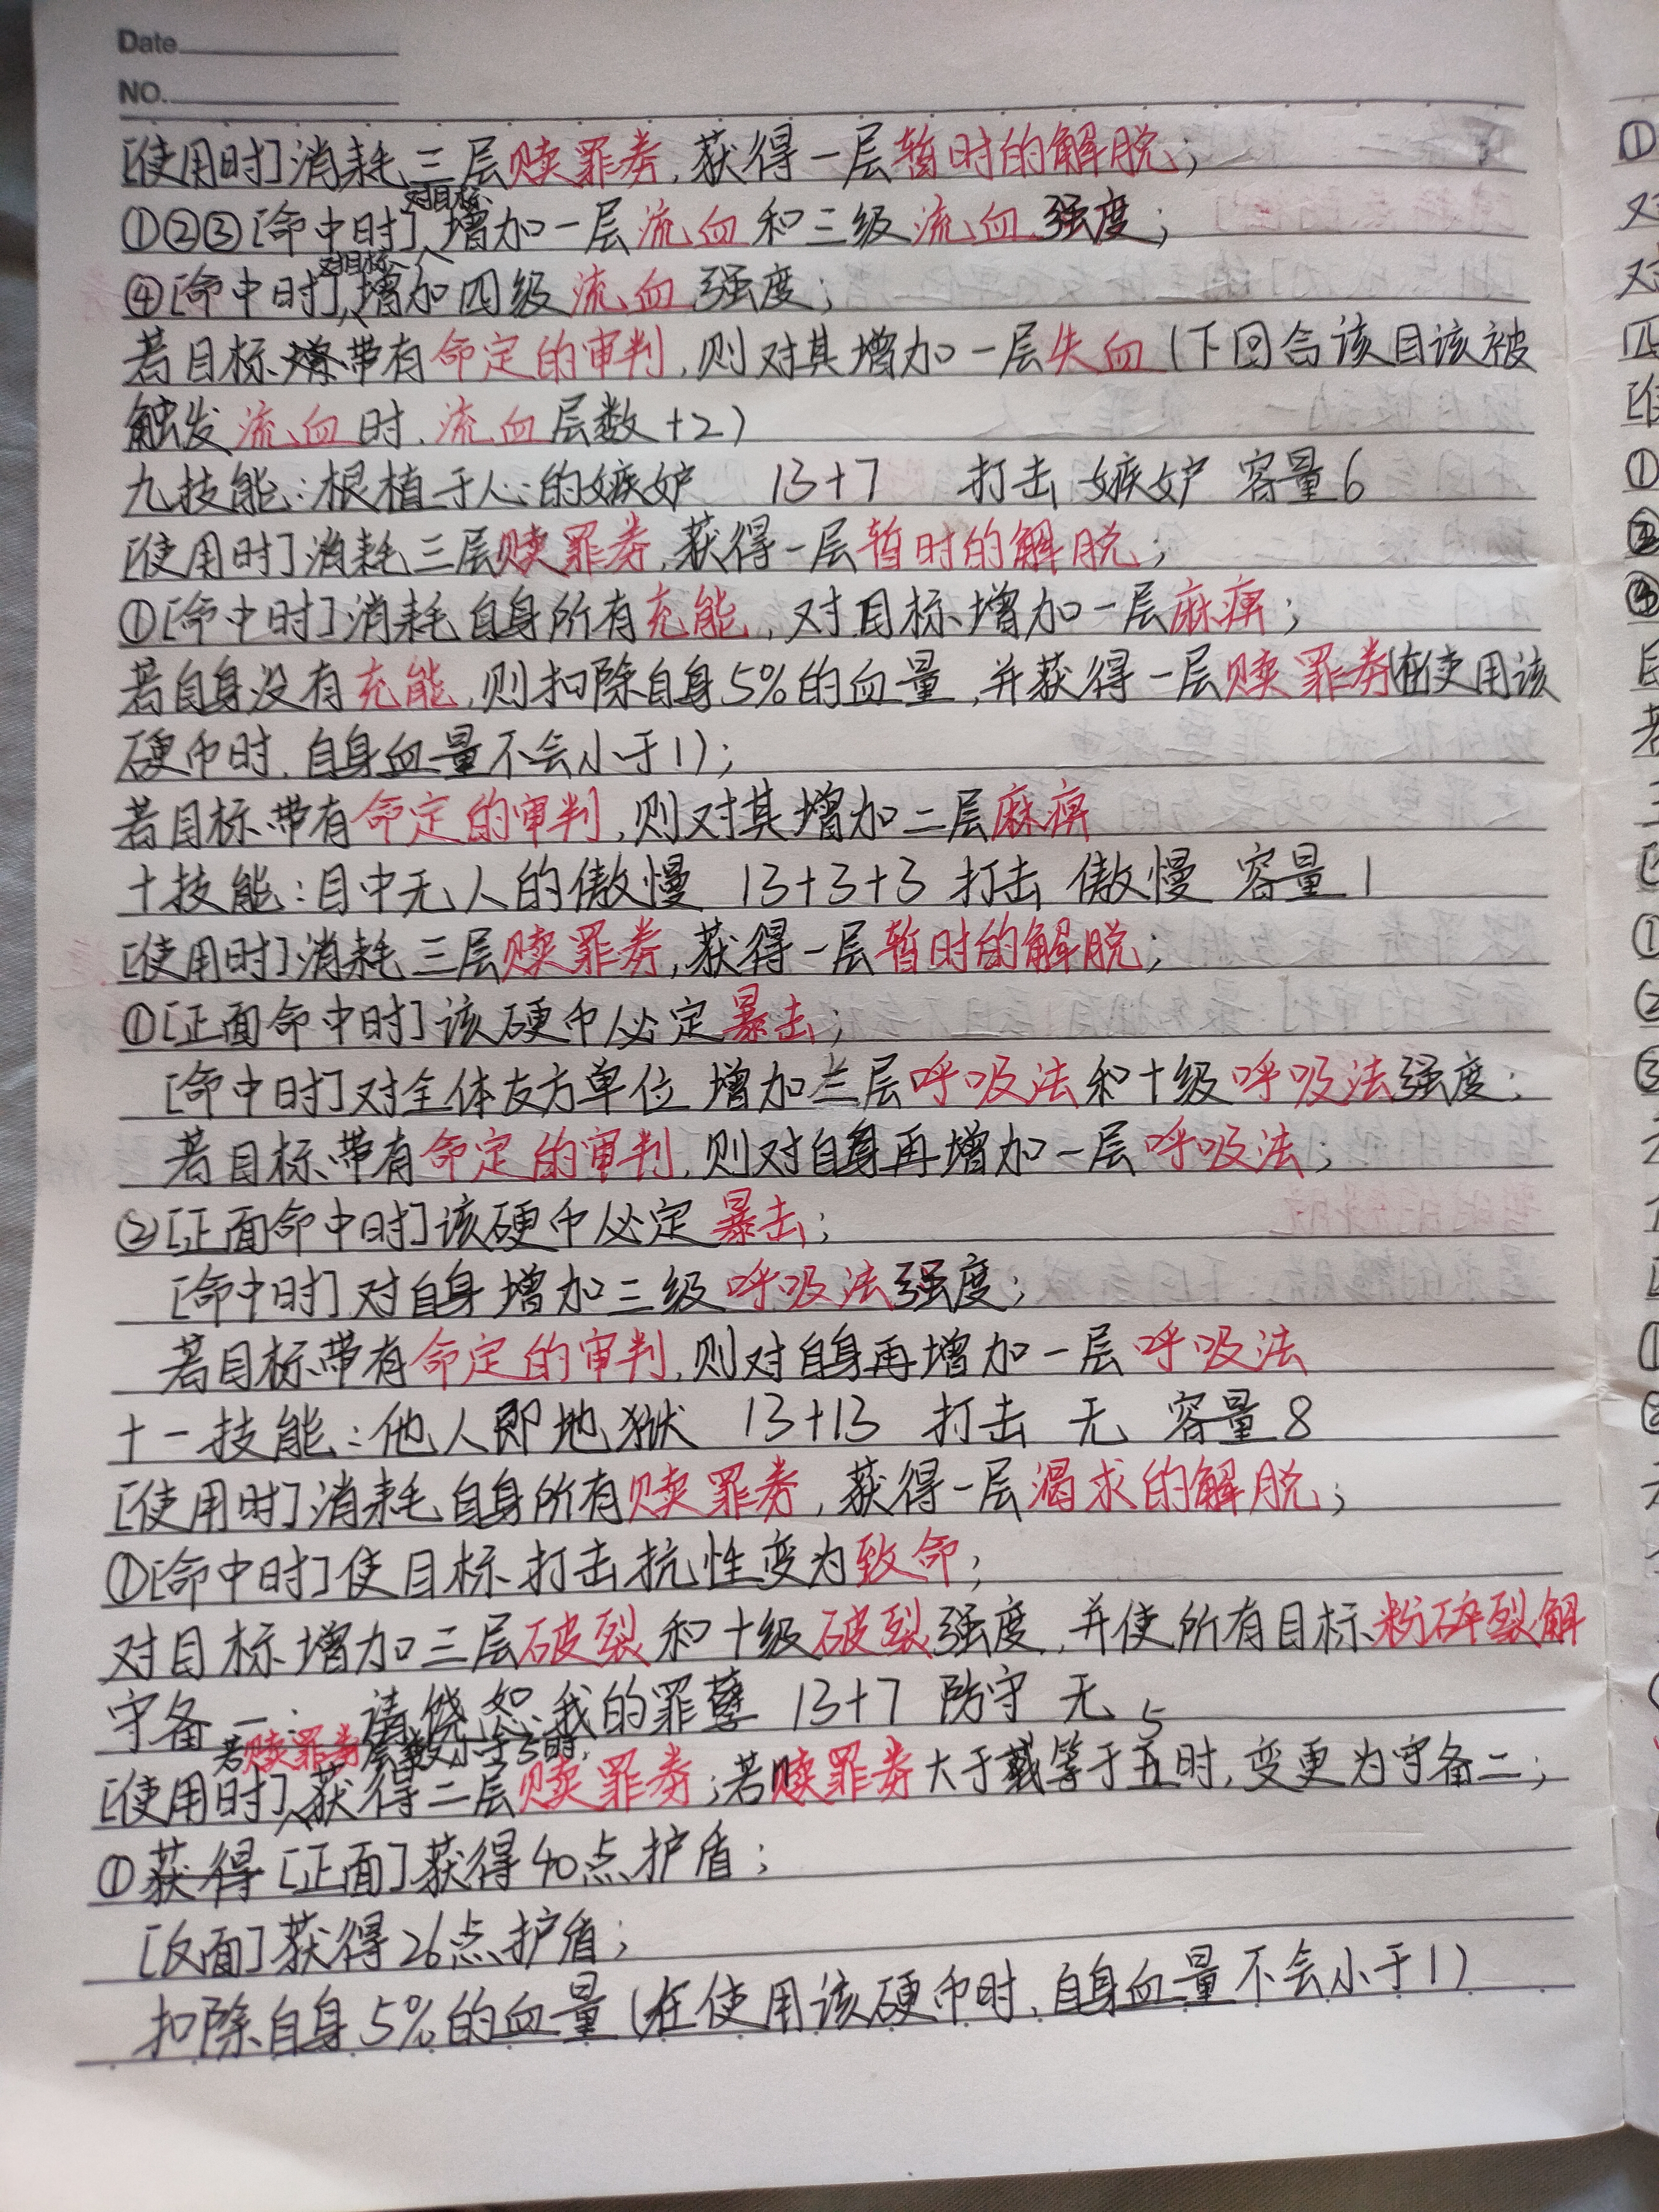 Date
NO.
[使用时]消耗三层赎罪券,获得一层暂时的解脱;
①②③[命中时]对目标增加一层流血和三级流血强度;
④[命中时]对目标增加四级流血强度;
若目标带有命定的审判,则对其增加一层失血(下回合该目该被
触发流血时,流血层数+2)
九技能:根植于人心的嫉妒 13+7 打击 嫉妒 容量6
[使用时]消耗三层赎罪券,获得一层暂时的解脱;
①[命中时]消耗自身所有充能,对目标增加一层麻痹;
若自身没有充能,则扣除自身5%的血量,并获得一层赎罪券(在使用该
硬币时,自身血量不会小于1);
若目标带有命定的审判,则对其增加二层麻痹
十技能:目中无人的傲慢 13+3+3 打击 傲慢 容量1
[使用时]消耗三层赎罪券,获得一层暂时的解脱;
①[正面命中时]该硬币必定暴击;
[命中时]对全体友方单位增加三层呼吸法和十级呼吸法强度;
若目标带有命定的审判,则对自身再增加一层呼吸法;
②[正面命中时]该硬币必定暴击;
[命中时]对自身增加三级呼吸法强度;
若目标带有命定的审判,则对自身再增加一层呼吸法
十一技能:他人即地狱 13+13 打击 无 容量8
[使用时]消耗自身所有赎罪券,获得一层渴求的解脱;
①[命中时]使目标打击抗性变为致命;
对目标增加三层破裂和十级破裂强度,并使所有目标粉碎裂解
守备一: 请饶恕我的罪孽 13+7 防守 无 5
[使用时]若赎罪券层数小于5时,获得二层赎罪券;若赎罪券大于或等于五时,变更为守备二;
①获得[正面]获得40点护盾;
[反面]获得26点护盾;
扣除自身5%的血量(在使用该硬币时,自身血量不会小于1)